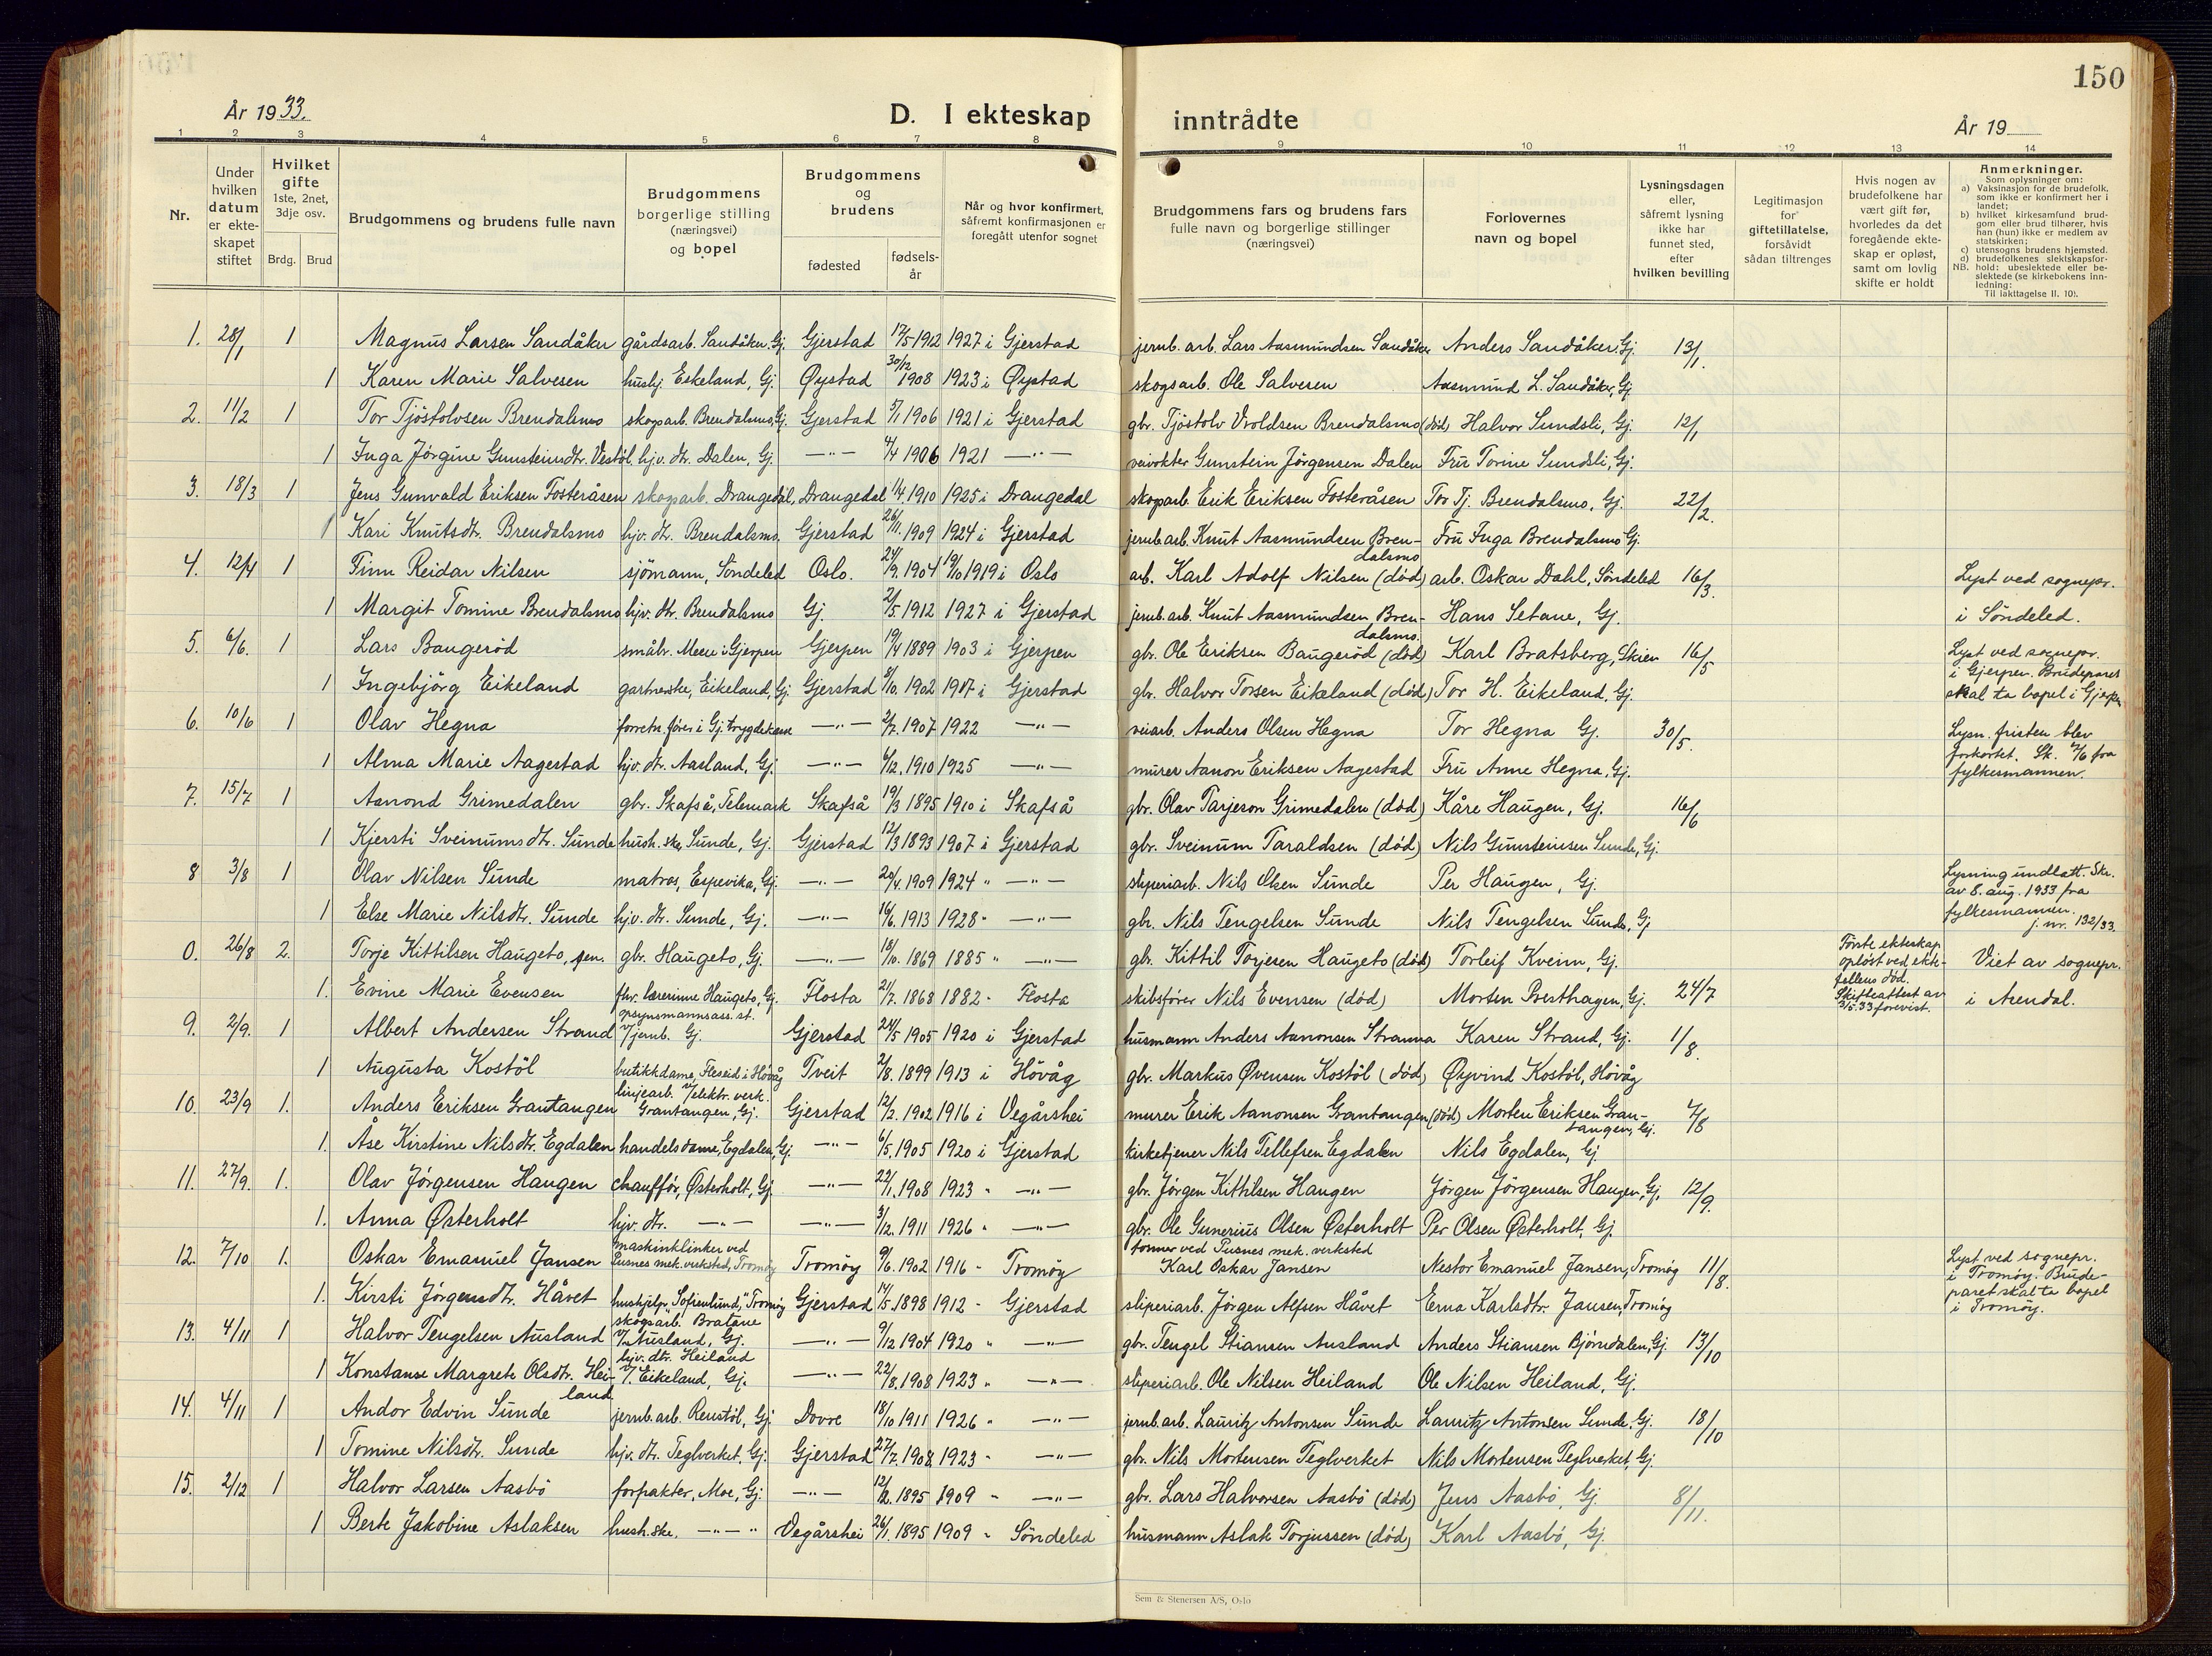 150
År 1933.
D. I ekteskap inntrådte
År 19
1 2 3 4 5 6 7 8 9 10 11 12 13 14
Nr.
Under hvilken datum er ekteskapet stiftet
Hvilket gifte 1ste, 2net, 3dje osv.
Brdg. Brud
Brudgommens og brudens fulle navn
Brudgommens borgerlige stilling (næringsvei) og bopel
Brudgommens og brudens
fødested
fødselsår
Når og hvor konfirmert, såfremt konfirmasjonen er foregått utenfor sognet
Brudgommens fars og brudens fars fulle navn og borgerlige stillinger (næringsvei)
Forlovernes navn og bopel
Lysningsdagen eller, såfremt lysning ikke har funnet sted, efter hvilken bevilling
Legitimasjon for giftetillatelse, forsåvidt sådan tiltrenges
Hvis nogen av brudefolkene har vært gift før, hvorledes da det foregående ekteskap er opløst, samt om lovlig skifte er holdt
Anmerkninger.
Som oplysninger om:
a) Vaksinasjon for de brudefolk, som ikke er konfirmert her i landet;
b) hvilket kirkesamfund brudgom eller brud tilhører, hvis han (hun) ikke er medlem av statskirken;
c) utensogns brudens hjemsted.
d) brudefolkenes slektskapsforhold: ubeslektede eller beslektede (se kirkebokens innledning:
NB. Til iakttagelse II. 10).
1. 28/1 1 Magnus Larsen Sandåker gårdsarb. Sandåker. Gj. Gjerstad 17/5 1912 1927 i Gjerstad jernb. arb. Lars Aasmundsen Sandåker Anders Sandåker, Gj. 13/1.
1 Karen Marie Salvesen hushj. Eskeland, Gj. Øystad 30/12 1908 1923 i Øystad skogsarb. Ole Salvesen Aasmund L. Sandåker, Gj.
2. 11/2 1 Tor Tjöstolvsen Brendalsmo skogsarb. Brendalsmo, Gj. Gjerstad 5/1 1906 1921 i Gjerstad gbr. Tjöstolv Vroldsen Brendalsmo (död) Halvor Sundsli, Gj. 12/1
1 Inga Jörgine Gunsteinsdtr. Vestöl hjv. dtr. Dalen, Gj. —"— 4/4 1906 1921 —"— veivokter Gunstein Jörgensen Dalen Fru Torine Sundsli, Gj.
3. 18/3 1 Jens Gunvald Eriksen Fosteråsen skogsarb. Drangedal, Drangedal 1/4. 1910 1925 i Drangedal skogsarb. Erik Eriksen Fosteråsen Tor Tj. Brendalsmo, Gj. 22/2.
1 Kari Knutsdtr. Brendalsmo hjv. dtr. Brendalsmo Gjerstad 26/11. 1909 1924 i Gjerstad jernb. arb. Knut Aasmundsen Brendalsmo Fru Inga Brendalsmo Gj.
4. 12/4 1 Finn Reidar Nilsen sjömann, Söndeled Oslo. 24/9. 1904 19/10 1919 i Oslo arb. Karl Adolf Nilsen (död) arb. Oskar Dahl, Söndeled 16/3. Lyst ved sognepr.
1 Margit Tomine Brendalsmo hjv. dtr. Brendalsmo Gj. 2/5. 1912 1927 i Gjerstad jernb. arb. Knut Aasmundsen Brendalsmo. Hans Setane, Gj. i Söndeled.
5. 6/6. 1 Lars Baugeröd småbr. Meen i Gjerpen Gjerpen 19/4 1889 1903 i Gjerpen gbr. Ole Eriksen Baugeröd (död) Karl Bratsberg, Skien 16/5 Lyst ved sognepr.
1 Ingebjörg Eikeland gartnerske, Eikeland, Gj. Gjerstad 8/10. 1902 1917 i Gjerstad gbr. Halvor Torsen Eikeland (död) Tor H. Eikeland, Gj. i Gjerpen. Brudeparet skal ta bopel i Gjerpen
6. 10/6 1 Olav Hegna forretn. förer i Gj. trygdekasse —"— 2/7. 1907 1922 —"— veiarb. Anders Olsen Hegna Tor Hegna Gj. 30/5. Lysn. fristen blev
1 Alma Marie Aagestad hjv. dtr. Aasland, Gj. —"— 6/12. 1910 1925 —"— murer Aanon Eriksen Aagestad Fru Anne Hegna, Gj. forkortet. Sk. 7/6 fra fylkesmannen.
7. 15/7 1 Aanond Grimedalen gbr. Skafså, Telemark Skafså 19/3 1895 1910 i Skafså gbr. Olav Tarjeson Grimedalen (död) Kåre Haugen, Gj. 16/6
1 Kjersti Sveinumsdtr. Sunde hush. ske, Sunde, Gj. Gjerstad 12/3 1893 1907 i Gjerstad gbr. Sveinum Taraldsen (död) Nils Gunsteinsen Sunde, Gj.
8 3/8 1 Olav Nilsen Sunde matros, Espevika, Gj. —"— 20/4. 1909 1924 " —"— sliperiarb. Nils Olsen Sunde Per Haugen, Gj. Lysning undlatt. Skr. av 8. aug. 1933 fra
1 Else Marie Nilsdtr. Sunde hjv. dtr. Sunde, Gj. —"— 16/6. 1913 1928 " —"— gbr. Nils Tengelsen Sunde Nils Tengelsen Sunde, Gj fylkesmannen. j. nr. 132/33.
0. 26/8 2. Torje Kittilsen Haugeto, sen. gbr. Haugeto, Gj. —"— 18/10. 1869 1885 " —"— gbr. Kittil Torjesen Haugeto (död) Torleif Kveim, Gj. Förste ekteskap oplöst ved ekte- Viet av sognepr.
1. Evine Marie Evensen fhv. lærerinne Haugeto, Gj. Flosta 21/7. 1868 1882 " Flosta skibsförer Nils Evensen (död) Morten Presthagen, Gj. 24/7 fellens död. Skifteattest av 3/5.33 forevist. i Arendal.
9. 2/9. 1 Albert Andersen Strand opsynsmannsass. st. v/ jernb. Gj. Gjerstad 24/5 1905 1920 i Gjerstad husmann Anders Aanonsen Stranna Karen Strand, Gj. 1/8.
1 Augusta Kostöl butikkdame, Fleseid i Hövåg Tveit 2/8. 1899 1913 i Hövåg gbr. Markus Øvensen Kostöl (död) Øyvind Kostöl, Hövåg
10. 23/9 1. Anders Eriksen Grantangen linjearb. v/elektr. verk. Grantangen, Gj. Gjerstad 12/2. 1902 1916 i Vegårshei murer Erik Aanonsen Grantangen (död) Morten Eriksen Grantangen, Gj. 7/8
1. Åse Kirstine Nilsdtr. Egdalen handelsdame, Egdalen, Gj —"— 6/5. 1905 1920 i Gjerstad kirketjener Nils Tellefsen Egdalen Nils Egdalen, Gj
11. 27/9. 1. Olav Jörgensen Haugen chauffør, Østerholt, Gj. —"— 22/1. 1908 1923 " —"— gbr. Jörgen Kittilsen Haugen Jörgen Jörgensen Haugen, Gj. 12/9.
1. Anna Østerholt hjv. dtr. —"— —"— 3/12. 1911 1926 " —"— gbr. Ole Gunerius Olsen Østerholt Per Olsen Østerholt, Gj.
12. 7/10 1. Oskar Emanuel Jansen maskinklinker ved Pusnes mek. verksted, Tromöy Tromöy 9/6. 1902 1916 " Tromöy former ved Pusnes mek. verksted Karl Oskar Jansen Nestor Emanuel Jansen, Tromöy 11/8. Lyst ved sognepr. i Tromöy. Brude-
1. Kirsti Jörgensdtr. Håvet hushjelp, "Sofienlund," Tromöy Gjerstad 14/5 1898 1912 " Gjerstad sliperiarb. Jörgen Alfsen Håvet Erna Karlsdtr. Jansen, Tromöy paret skal ta bopel i Tromöy.
13. 4/11 1 Halvor Tengelsen Ausland skogsarb. Bratane v/ Ausland, Gj. —"— 9/12 1904 1920 " —"— gbr. Tengel Stiansen Ausland Anders Stiansen Björndalen, Gj. 13/10
1 Konstanse Margrete Olsdtr. Heiland hjv. dtr. Heiland v/. Eikeland, Gj. —"— 22/8. 1908 1923 " —"— sliperiarb. Ole Nilsen Heiland Ole Nilsen Heiland, Gj.
14. 4/11 1 Andor Edvin Sunde jernb. arb. Renstöl, Gj. Dovre 18/10 1911 1926 " —"— jernb. arb. Lauritz Antonsen Sunde Lauritz Antonsen Sunde, Gj. 18/10
1 Tomine Nilsdtr. Sunde hjv. dtr. Teglverket, Gj. Gjerstad 27/7. 1908 1923 " —"— gbr. Nils Mortensen Teglverket Nils Mortensen Teglverket, Gj.
15. 2/12 1 Halvor Larsen Aasbö forpakter, Moe, Gj. —"— 12/2. 1895 1909 " —"— gbr. Lars Halvorsen Aasbö (död) Jens Aasbö, Gj. 8/11.
1 Berte Jakobine Aslaksen hush. ske. —"—" Vegårshei 26/1. 1895 1909 " Söndeled husmann Aslak Torjussen (död) Karl Aasbö, Gj.
Sem & Stenersen A/S, Oslo